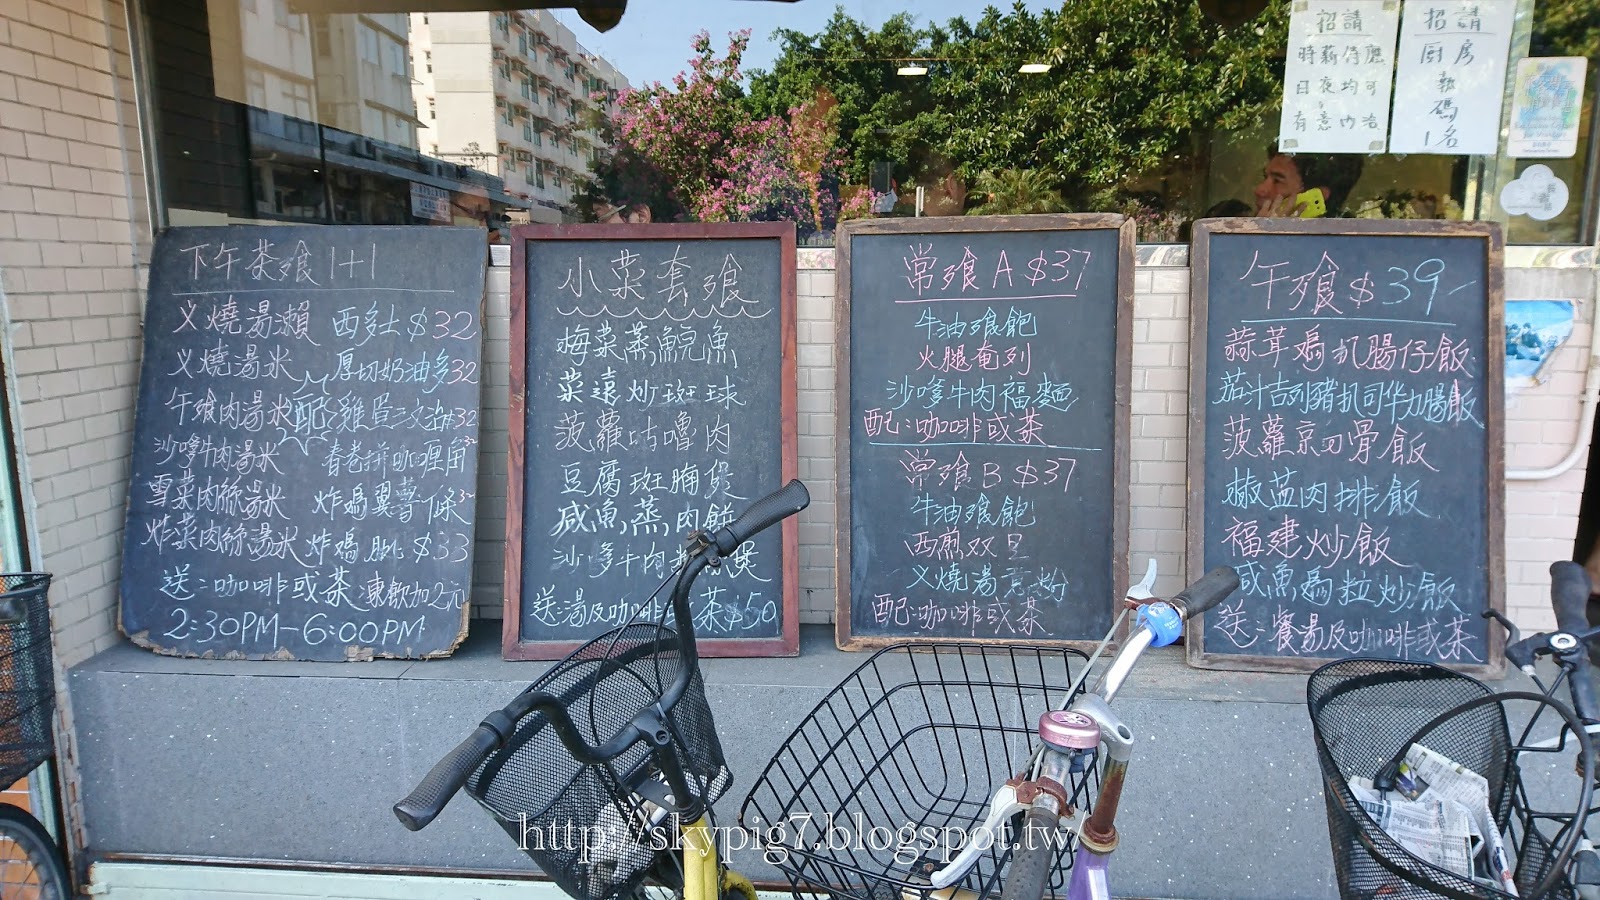 下午茶飱 1+1
义燒湯瀨 西多士 $32
义燒湯米 厚切奶油多 32
午飱肉湯米 配 雞蛋三文治 32
沙嗲牛肉湯米 春卷拼咖喱角 32
雪菜肉絲湯米 炸鸡翼薯條 32
炸菜肉絲湯米 炸鸡 $33
送:咖啡或茶 凍飲加2元
2:30PM-6:00PM
小菜套飱
梅菜蒸鯇魚
菜遠炒斑球
菠蘿咕嚕肉
豆腐斑腩煲
咸魚蒸肉餅
沙嗲牛肉粉絲煲
送湯及咖啡或茶 $50
常飱A $37
牛油飱飽
火腿奄列
沙嗲牛肉福麵
配:咖啡或茶
常飱B $37
牛油飱飽
西煎双旦
义燒湯意粉
配:咖啡或茶
午飱 $39-
蒜茸鸡扒腸仔飯
茄汁吉列豬扒司华力腸飯
菠蘿京叨骨飯
椒盐肉排飯
福建炒飯
咸魚鸡粒炒飯
送:餐湯及咖啡或茶
招請
時薪侍應
日夜均可
有意內洽
招請
厨房
執碼
1名
http://skypig7.blogspot.tw/